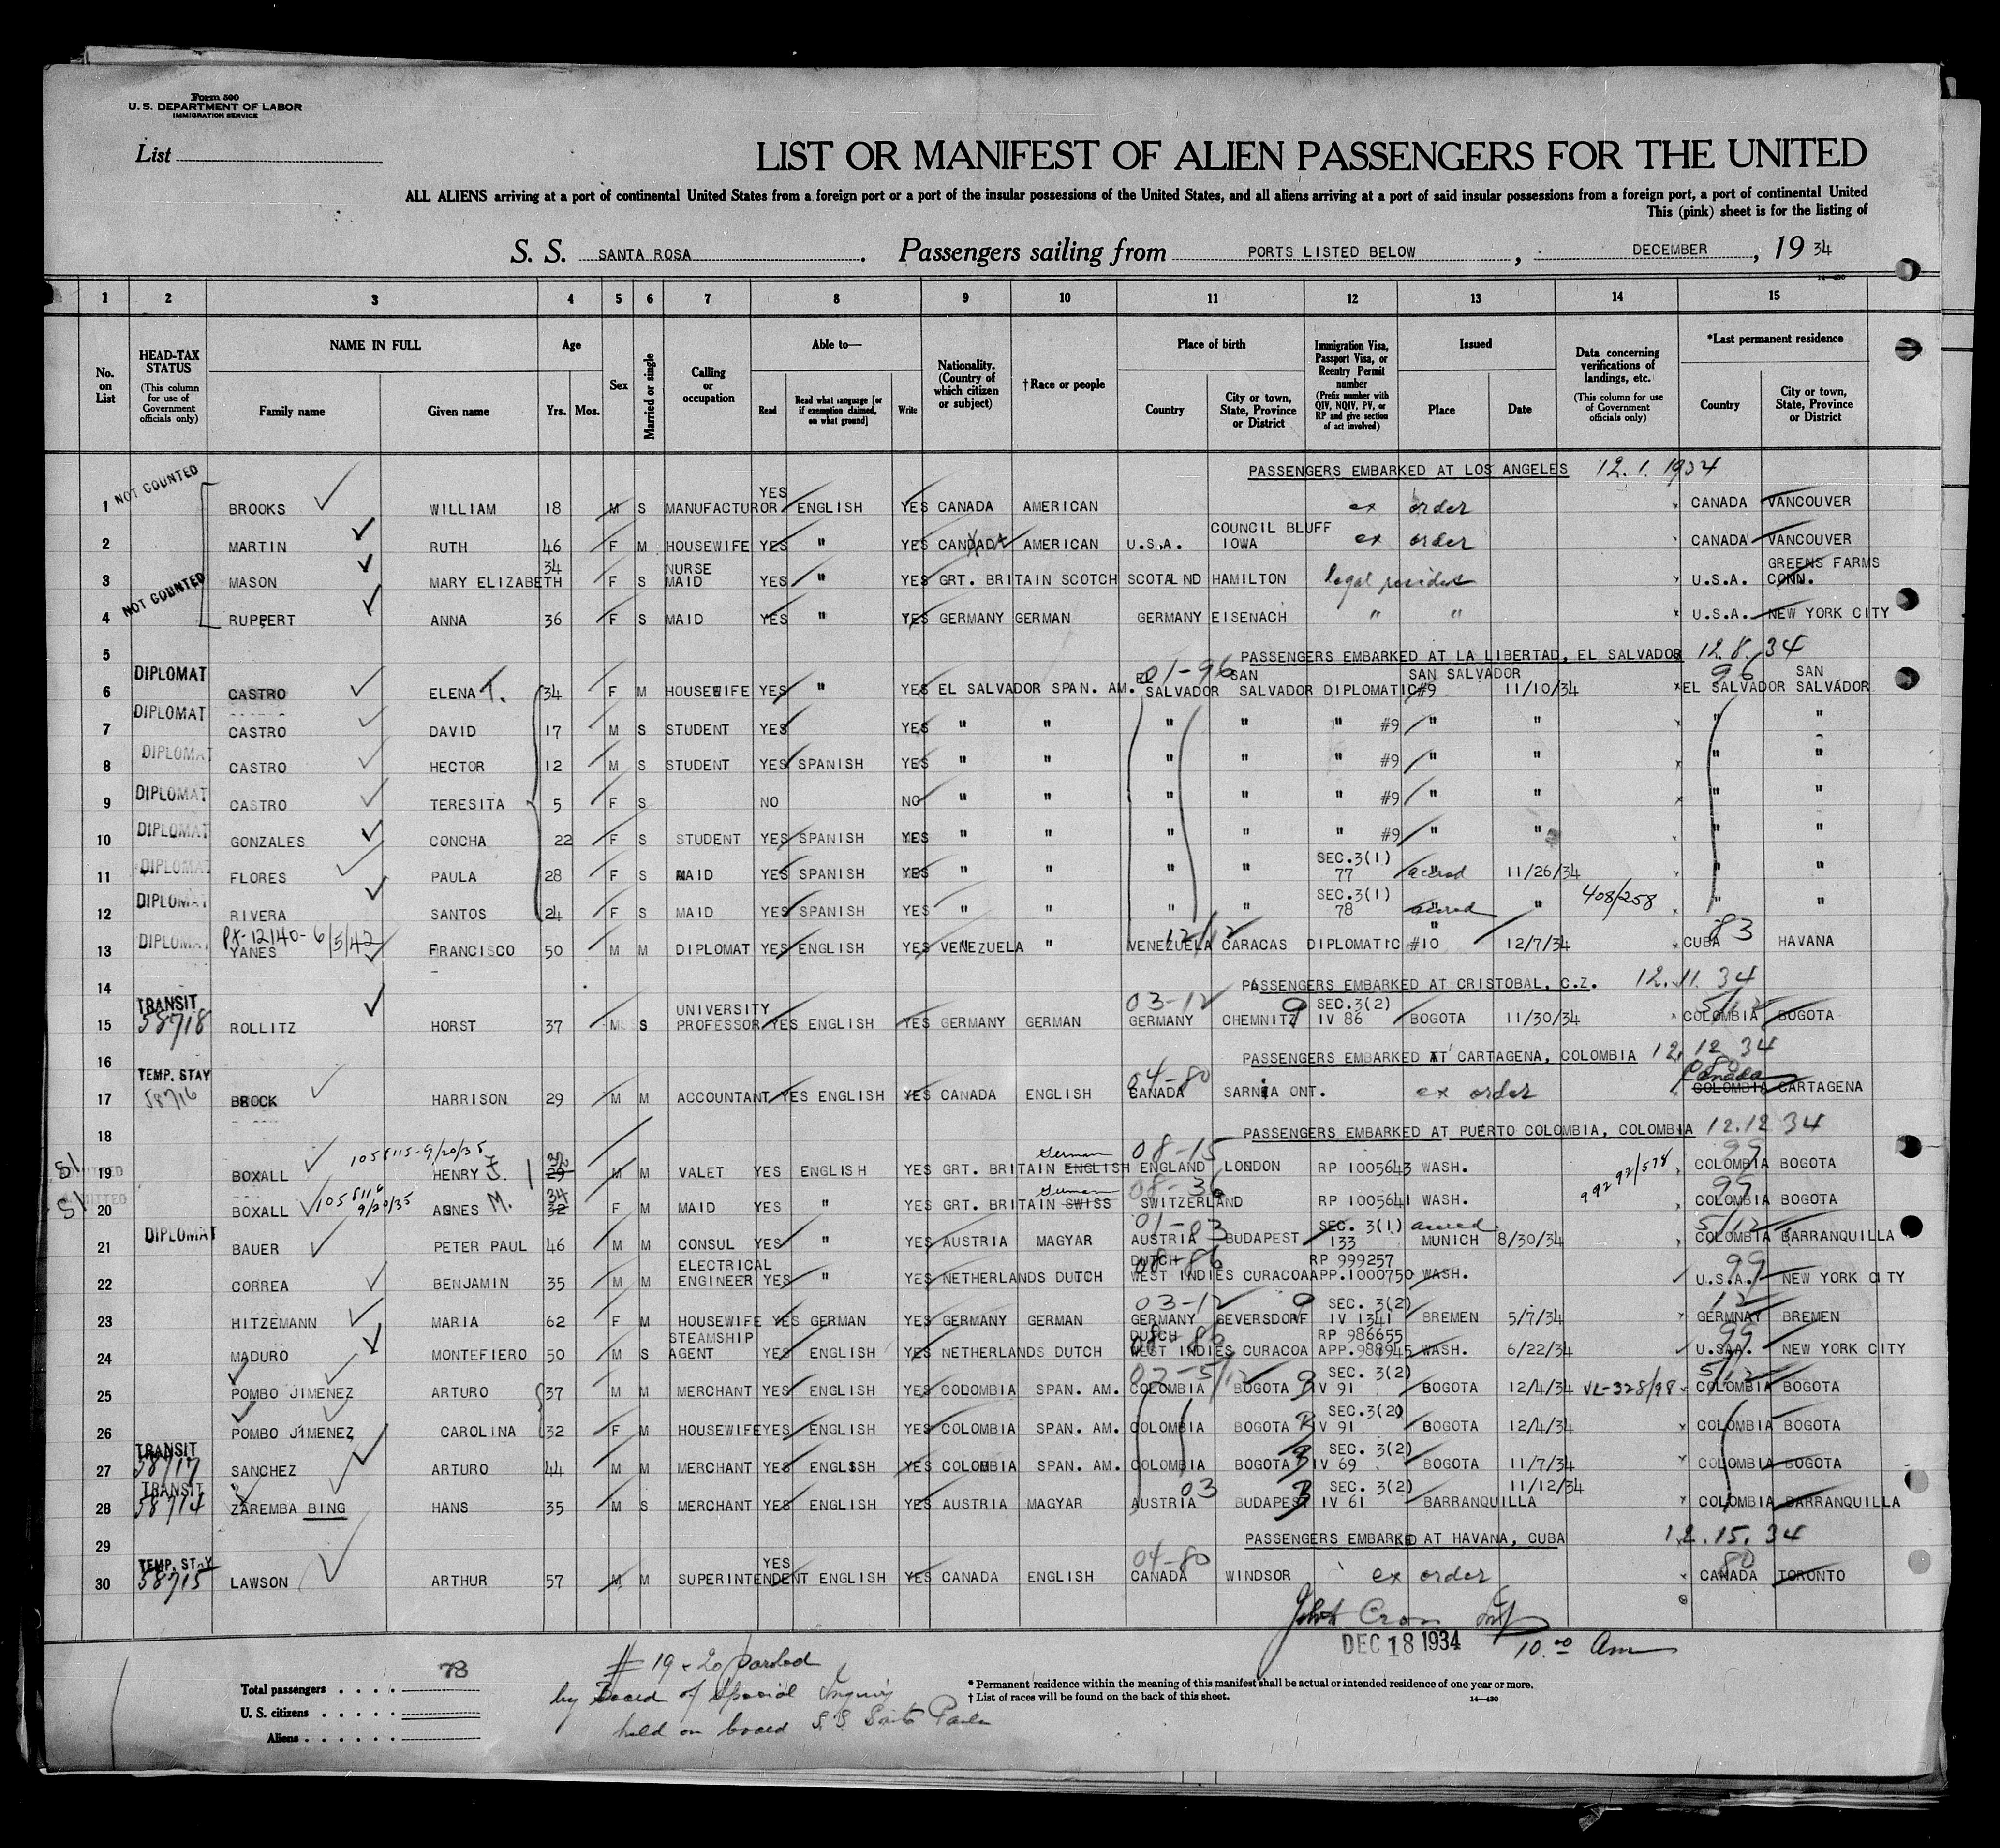 Form 500
U. S. DEPARTMENT OF LABOR
IMMIGRATION SERVICE
List
LIST OR MANIFEST OF ALIEN PASSENGERS FOR THE UNITED
ALL ALIENS arriving at a port of continental United States from a foreign port or a port of the insular possessions of the United States, and all aliens arriving at a port of said insular possessions from a foreign port, a port of continental United
This (pink) sheet is for the listing of
S. S. SANTA ROSA . Passengers sailing from PORTS LISTED BELOW , DECEMBER , 19 34
14-430
1 2 3 4 5 6 7 8 9 10 11 12 13 14 15
No. on List
HEAD-TAX STATUS (This column for use of Government officials only)
NAME IN FULL Family name Given name
Age Yrs. Mos.
Sex
Married or single
Calling or occupation
Able to— Read Read what language [or if exemption claimed, on what ground] Write
Nationality. (Country of which citizen or subject)
†Race or people
Place of birth Country City or town, State, Province or District
Immigration Visa, Passport Visa, or Reentry Permit number (Prefix number with QIV, NQIV, PV, or RP and give section of act involved)
Issued Place Date
Data concerning verifications of landings, etc. (This column for use of Government officials only)
*Last permanent residence Country City or town, State, Province or District
PASSENGERS EMBARKED AT LOS ANGELES 12. 1. 1934
NOT COUNTED
1 BROOKS WILLIAM 18 M S MANUFACTUROR YES ENGLISH YES CANADA AMERICAN ex order CANADA VANCOUVER
2 MARTIN RUTH 46 F M HOUSEWIFE YES " YES CANDADA AMERICAN U.S.A. COUNCIL BLUFF IOWA ex order CANADA VANCOUVER
3 MASON MARY ELIZABETH 34 F S NURSE MAID YES " YES GRT. BRITAIN SCOTCH SCOTALND HAMILTON legal resident U.S.A. GREENS FARMS CONN.
NOT COUNTED
4 RUPPERT ANNA 36 F S MAID YES " YES GERMANY GERMAN GERMANY EISENACH " " U.S.A. NEW YORK CITY
5 PASSENGERS EMBARKED AT LA LIBERTAD, EL SALVADOR 12. 8. 34
6 DIPLOMAT CASTRO ELENA T. 34 F M HOUSEWIFE YES " YES EL SALVADOR SPAN. AM. 01-96 EL SALVADOR SAN SALVADOR DIPLOMATIC #9 SAN SALVADOR 11/10/34 96 EL SALVADOR SAN SALVADOR
7 DIPLOMAT CASTRO DAVID 17 M S STUDENT YES YES " " " " " #9 " " " "
8 DIPLOMAT CASTRO HECTOR 12 M S STUDENT YES SPANISH YES " " " " " #9 " " " "
9 DIPLOMAT CASTRO TERESITA 5 F S NO NO " " " " " #9 " " " "
10 DIPLOMAT GONZALES CONCHA 22 F S STUDENT YES SPANISH YES " " " " " #9 " " " "
11 DIPLOMAT FLORES PAULA 28 F S MAID YES SPANISH YES " " " " SEC.3(1) 77 accred " 11/26/34 " "
12 DIPLOMAT RIVERA SANTOS 24 F S MAID YES SPANISH YES " " " " SEC.3(1) 78 accred " " 408/258 " "
13 DIPLOMAT PX-12140-6/5/42 YANES FRANCISCO 50 M M DIPLOMAT YES ENGLISH YES VENEZUELA " VENEZUELA 12/12 CARACAS DIPLOMATIC #10 " 12/7/34 CUBA 83 HAVANA
14 PASSENGERS EMBARKED AT CRISTOBAL, C.Z. 12. 11. 34
15 TRANSIT 58718 ROLLITZ HORST 37 M S UNIVERSITY PROFESSOR YES ENGLISH YES GERMANY GERMAN 03-12 GERMANY CHEMNITZ SEC.3(2) IV 86 BOGOTA 11/30/34 5/12 COLOMBIA BOGOTA
16 PASSENGERS EMBARKED AT CARTAGENA, COLOMBIA 12. 12 34
17 TEMP. STAY 58716 BROCK HARRISON 29 M M ACCOUNTANT YES ENGLISH YES CANADA ENGLISH 04-80 CANADA SARNIA ONT. ex order Canada COLOMBIA CARTAGENA
18 PASSENGERS EMBARKED AT PUERTO COLOMBIA, COLOMBIA 12.12 34
19 SI BOXALL 1058115-9/20/35 HENRY J. 29 M M VALET YES ENGLISH YES GRT. BRITAIN German ENGLISH 08-15 ENGLAND LONDON RP 1005643 WASH. 99 COLOMBIA BOGOTA
20 SI BOXALL 1058116 9/20/35 AGNES M. 34 32 F M MAID YES " YES GRT. BRITAIN German SWISS 08-36 SWITZERLAND RP 1005641 WASH. 99292/578 99 COLOMBIA BOGOTA
21 DIPLOMAT BAUER PETER PAUL 46 M M CONSUL YES " YES AUSTRIA MAGYAR 01-03 AUSTRIA BUDAPEST SEC. 3(1) 133 accred MUNICH 8/30/34 5/12 COLOMBIA BARRANQUILLA
22 CORREA BENJAMIN 35 M M ELECTRICAL ENGINEER YES " YES NETHERLANDS DUTCH 08-86 DUTCH WEST INDIES CURACOA RP 999257 APP.1000750 WASH. 99 U.S.A. NEW YORK CITY
23 HITZEMANN MARIA 62 F M HOUSEWIFE YES GERMAN YES GERMANY GERMAN 03-12 GERMANY GEVERSDORF SEC. 3(2) IV 1341 BREMEN 5/7/34 12 GERMNAY BREMEN
24 MADURO MONTEFIERO 50 M S STEAMSHIP AGENT YES ENGLISH YES NETHERLANDS DUTCH 08-86 DUTCH WEST INDIES CURACOA RP 986655 APP.988945 WASH. 6/22/34 99 U.SAA. NEW YORK CITY
25 POMBO JIMENEZ ARTURO 37 M M MERCHANT YES ENGLISH YES COLOMBIA SPAN. AM. 02-5/12 COLOMBIA BOGOTA SEC. 3(2) IV 91 BOGOTA 12/4/34 VL-328/98 5/12 COLOMBIA BOGOTA
26 POMBO JIMENEZ CAROLINA 32 F M HOUSEWIFE YES ENGLISH YES COLOMBIA SPAN. AM. COLOMBIA BOGOTA SEC.3(2) IV 91 BOGOTA 12/4/34 COLOMBIA BOGOTA
27 TRANSIT 58717 SANCHEZ ARTURO 44 M M MERCHANT YES ENGLSSH YES COLOMBIA SPAN. AM. COLOMBIA BOGOTA SEC. 3(2) IV 69 BOGOTA 11/7/34 COLOMBIA BOGOTA
28 TRANSIT 58714 ZAREMBA BING HANS 35 M S MERCHANT YES ENGLISH YES AUSTRIA MAGYAR 03 AUSTRIA BUDAPEST SEC. 3(2) IV 61 BARRANQUILLA 11/12/34 COLOMBIA BARRANQUILLA
29 PASSENGERS EMBARKED AT HAVANA, CUBA 12. 15. 34
30 TEMP. STAY 58715 LAWSON ARTHUR 57 M M SUPERINTENDENT YES ENGLISH YES CANADA ENGLISH 04-80 CANADA WINDSOR ex order 80 CANADA TORONTO
DEC 18 1934 10.00 Am
78
Total passengers
U. S. citizens
Aliens
# 19 & 20 paroled
by Board of Special Inquiry
held on board S.S. Santa Paula
* Permanent residence within the meaning of this manifest shall be actual or intended residence of one year or more.
† List of races will be found on the back of this sheet. 14-430